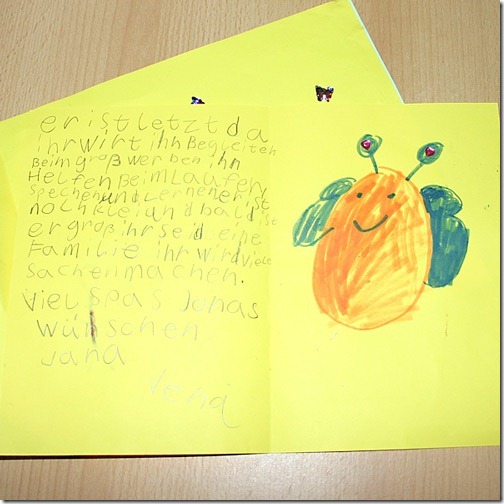 er ist letzt da
ihr wirt ihn Begleiten
Beim groß werden ihn
Helfen Beim Laufen,
spechen und Lernen er ist
noch klei and bald ist
er groß ihr seid seine
Familie ihr wird viele
sachen machen.
viel spas Jonas
wünschen
Jana
Lena